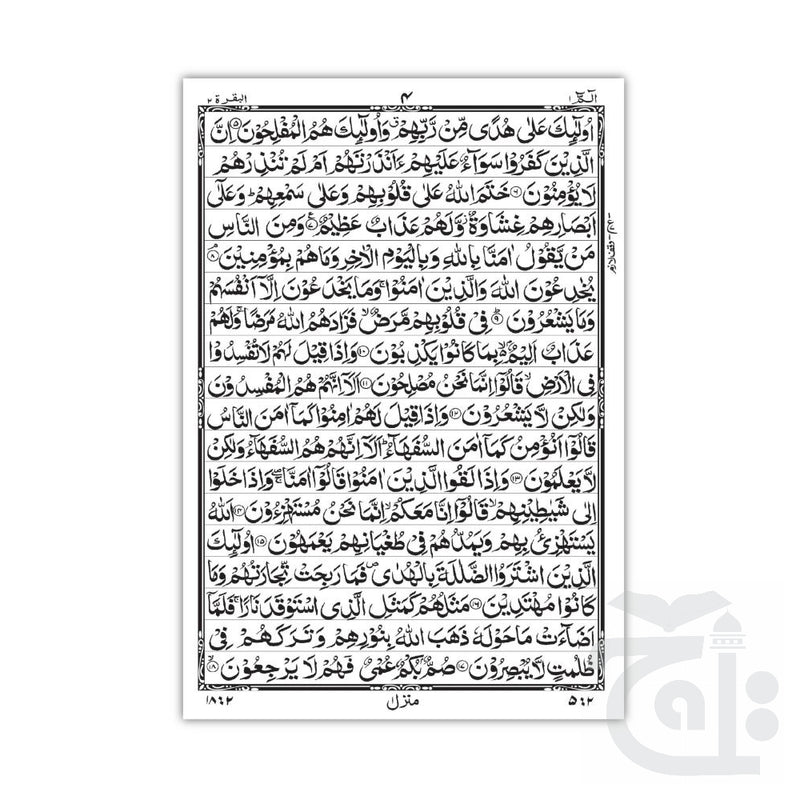 الٓمّٓ ١
۴
البقرة ٢
اُولٰٓئِكَ عَلٰى هُدًى مِّنْ رَّبِّهِمْ ۗ وَاُولٰٓئِكَ هُمُ الْمُفْلِحُوْنَ ۝۵ اِنَّ
الَّذِيْنَ كَفَرُوْا سَوَآءٌ عَلَيْهِمْ ءَاَنْذَرْتَهُمْ اَمْ لَمْ تُنْذِرْهُمْ
لَا يُؤْمِنُوْنَ ۝۶ خَتَمَ اللّٰهُ عَلٰى قُلُوْبِهِمْ وَعَلٰى سَمْعِهِمْ ؕ وَعَلٰٓى
اَبْصَارِهِمْ غِشَاوَةٌ ؗ وَّلَهُمْ عَذَابٌ عَظِيْمٌ ۝۷ وَمِنَ النَّاسِ
مَنْ يَّقُوْلُ اٰمَنَّا بِاللّٰهِ وَبِالْيَوْمِ الْاٰخِرِ وَمَا هُمْ بِمُؤْمِنِيْنَ ۝۸
يُخٰدِعُوْنَ اللّٰهَ وَالَّذِيْنَ اٰمَنُوْا ۚ وَمَا يَخْدَعُوْنَ اِلَّاۤ اَنْفُسَهُمْ
وَمَا يَشْعُرُوْنَ ؕ ۝۹ فِيْ قُلُوْبِهِمْ مَّرَضٌ ۙ فَزَادَهُمُ اللّٰهُ مَرَضًا ۚ وَلَهُمْ
عَذَابٌ اَلِيْمٌ ۢ ۙ بِمَا كَانُوْا يَكْذِبُوْنَ ۝۱۰ وَاِذَا قِيْلَ لَهُمْ لَا تُفْسِدُوْا
فِى الْاَرْضِ ۙ قَالُوْۤا اِنَّمَا نَحْنُ مُصْلِحُوْنَ ۝۱۱ اَلَاۤ اِنَّهُمْ هُمُ الْمُفْسِدُوْنَ
وَلٰكِنْ لَّا يَشْعُرُوْنَ ۝۱۲ وَاِذَا قِيْلَ لَهُمْ اٰمِنُوْا كَمَاۤ اٰمَنَ النَّاسُ
قَالُوْۤا اَنُؤْمِنُ كَمَاۤ اٰمَنَ السُّفَهَآءُ ؕ اَلَاۤ اِنَّهُمْ هُمُ السُّفَهَآءُ وَلٰكِنْ
لَّا يَعْلَمُوْنَ ۝۱۳ وَاِذَا لَقُوا الَّذِيْنَ اٰمَنُوْا قَالُوْۤا اٰمَنَّا ۖۚ وَاِذَا خَلَوْا
اِلٰى شَيٰطِيْنِهِمْ ۙ قَالُوْۤا اِنَّا مَعَكُمْ ۙ اِنَّمَا نَحْنُ مُسْتَهْزِءُوْنَ ۝۱۴ اَللّٰهُ
يَسْتَهْزِئُ بِهِمْ وَيَمُدُّهُمْ فِيْ طُغْيَانِهِمْ يَعْمَهُوْنَ ۝۱۵ اُولٰٓئِكَ
الَّذِيْنَ اشْتَرَوُا الضَّلٰلَةَ بِالْهُدٰى ۪ فَمَا رَبِحَتْ تِّجَارَتُهُمْ وَمَا
كَانُوْا مُهْتَدِيْنَ ۝۱۶ مَثَلُهُمْ كَمَثَلِ الَّذِى اسْتَوْقَدَ نَارًا ۚ فَلَمَّاۤ
اَضَآءَتْ مَا حَوْلَهٗ ذَهَبَ اللّٰهُ بِنُوْرِهِمْ وَتَرَكَهُمْ فِيْ
ظُلُمٰتٍ لَّا يُبْصِرُوْنَ ۝۱۷ صُمٌّۢ بُكْمٌ عُمْيٌ فَهُمْ لَا يَرْجِعُوْنَ ۙ ۝۱۸
۵ : ۲
منزل ۱
۱۸ : ۲
تاج